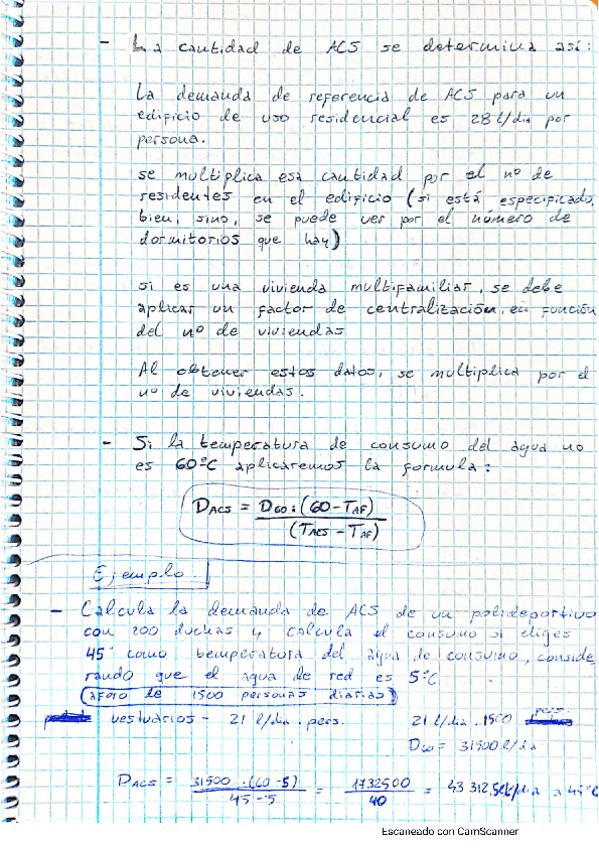 - La cantidad de ACS se determina así:
La demanda de referencia de ACS para un
edificio de uso residencial es 28 l/dia por
persona.
se multiplica esa cantidad por el nº de
residentes en el edificio (si está especificado,
bien, sino, se puede ver por el número de
dormitorios que hay)
si es una vivienda multifamiliar, se debe
aplicar un factor de centralización, en función
del nº de viviendas
Al obtener estos datos, se multiplica por el
nº de viviendas.
- Si la temperatura de consumo del agua no
es 60ºC aplicaremos la formula:
DACS = D60 · (60 - TAF)
(TACS - TAF)
Ejemplo
- Calcula la demanda de ACS de un polideportivo
con 200 duchas y calcula el consumo si eliges
45º como temperatura del agua de consumo, conside
rando que el agua de red es 5ºC
(aforo de 1500 personas diarias)
vestuarios - 21 l/dia . pers. 21 l/dia . 1500 pers.
D60 = 31500 l/dia
DACS = 31500 · (60 - 5) = 1732500 = 43312,5 l/dia a 45ºC
45 - 5 40
Escaneado con CamScanner